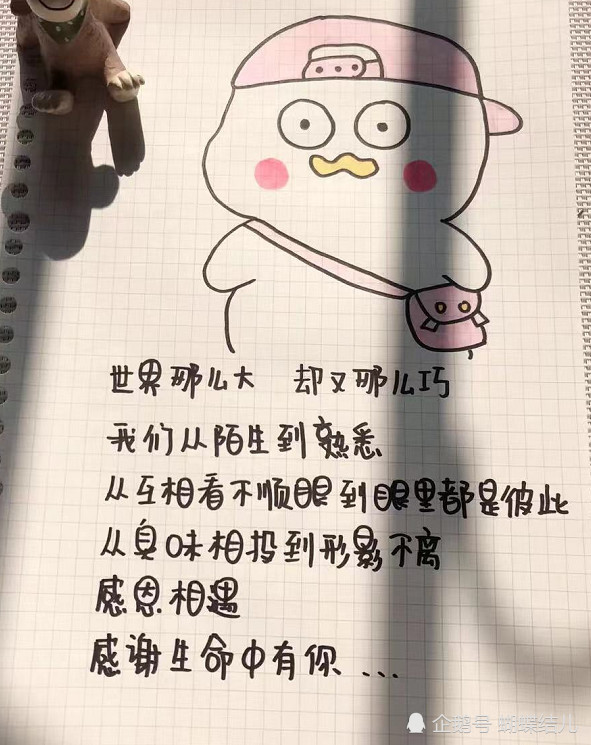 世界那么大 却又那么巧
我们从陌生到熟悉
从互相看不顺眼到眼里都是彼此
从臭味相投到形影不离
感恩相遇
感谢生命中有你 ...
企鹅号 蝴蝶结儿